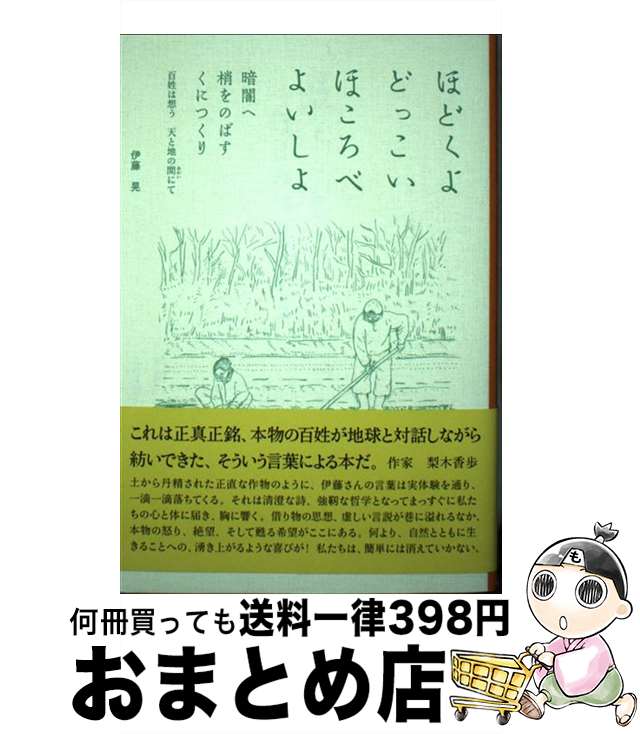 ほどくよ
どっこい
ほころべ
よいしよ
暗闇へ
梢をのばす
くにつくり
百姓は想う 天と地の間にて
あわい
伊藤 晃
これは正真正銘、本物の百姓が地球と対話しながら
紡いできた、そういう言葉による本だ。 作家 梨木香歩
土から丹精された正直な作物のように、伊藤さんの言葉は実体験を通り、
一滴一滴落ちてくる。それは清澄な詩、強靭な哲学となってまっすぐに私た
ちの心と体に届き、胸に響く。借り物の思想、虚しい言説が巷に溢れるなか、
本物の怒り、絶望、そして甦る希望がここにある。何より、自然とともに生
きることへの、湧き上がるような喜びが! 私たちは、簡単には消えていかない。
も
何冊買っても送料一律398円
おまとめ店